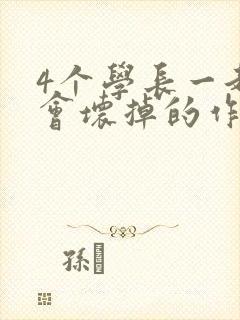 4个學長一
會壞掉的作
孫